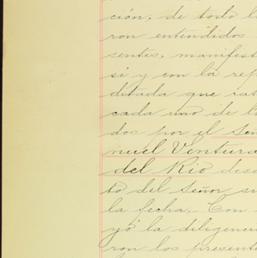 ción, de todo l
ron entendidos
sentes, manifest
si y con la rep
ditada que
cada uno de l
dos por el Señ
nuel Ventura
del Rio des
to del Señor su
la fecha. Con
yó la diligenc
ron los present